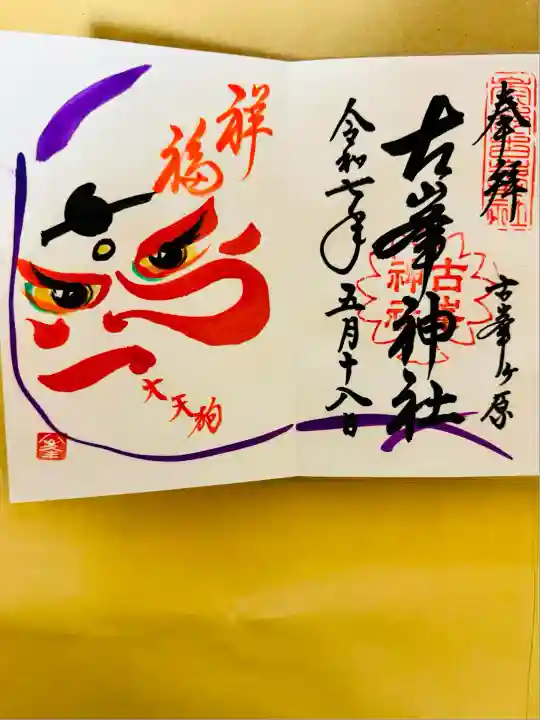 奉拝
古峯ヶ原
古峯神社
古峯
神社
令和七年
五月十八日
祥
福
大天狗